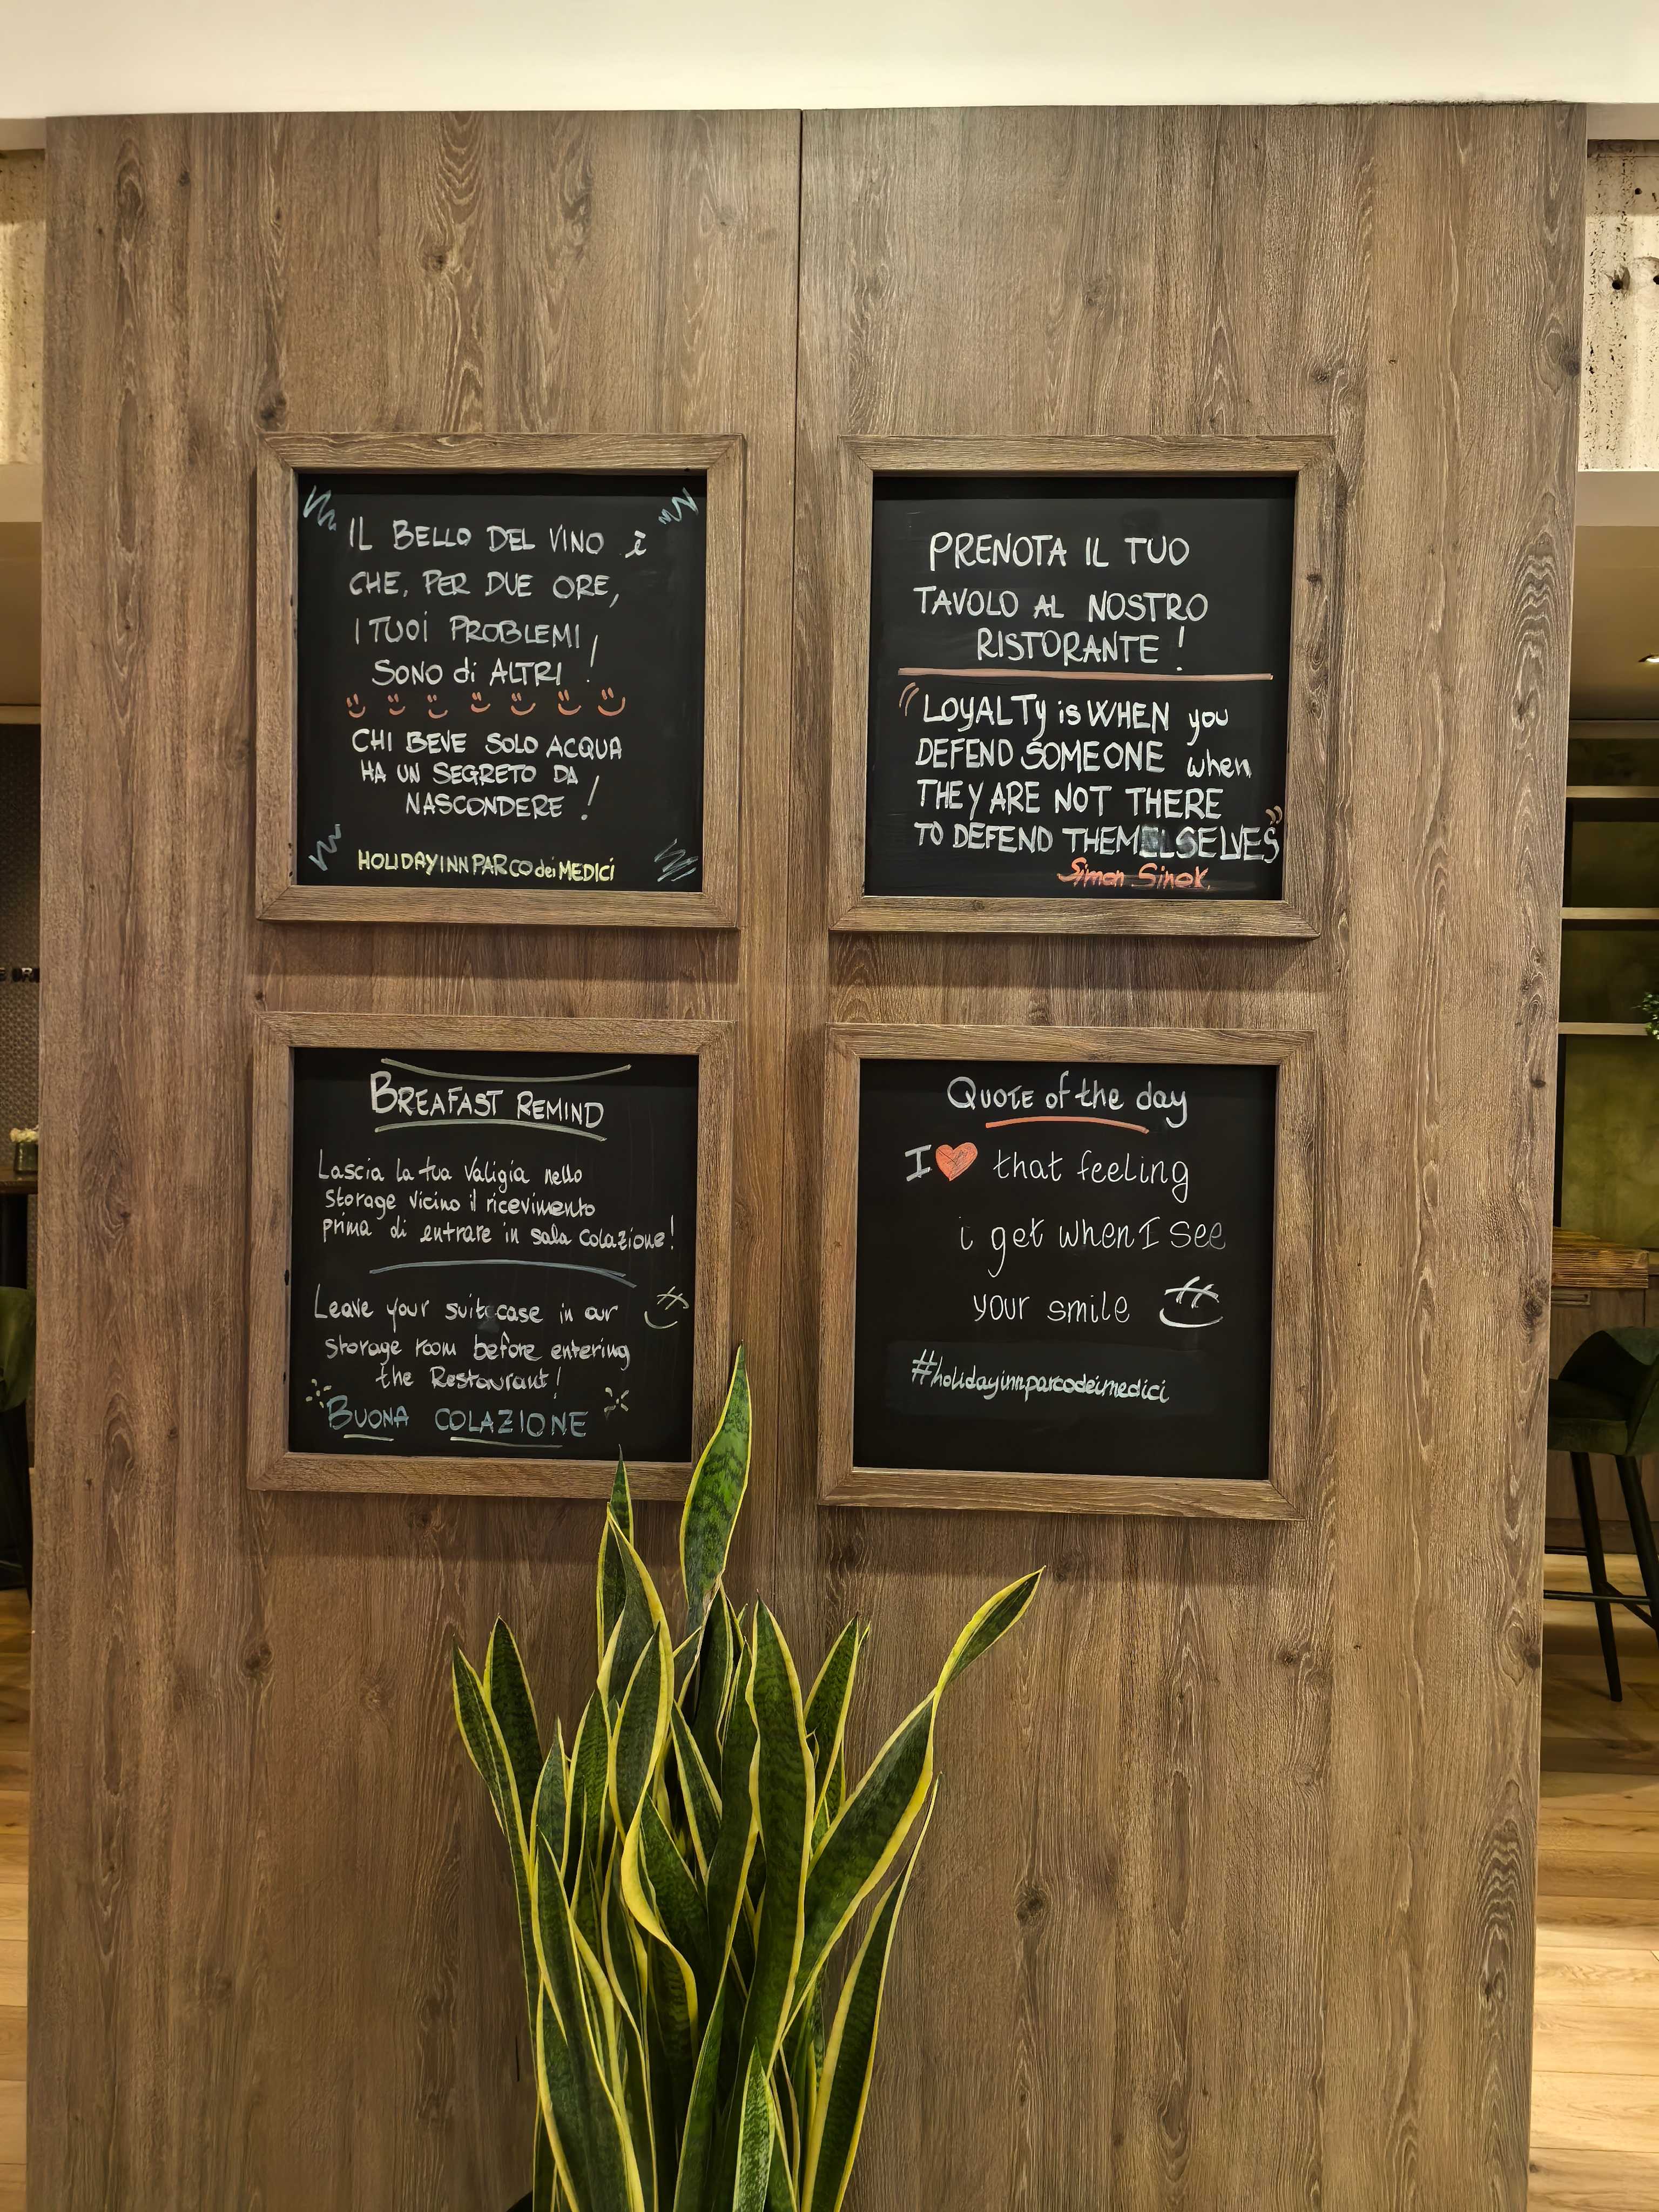 IL BELLO DEL VINO è
CHE, PER DUE ORE,
I TUOi PROBLEMI
SONO di ALTRI !
CHI BEVE SOLO ACQUA
HA UN SEGRETO DA
NASCONDERE !
HOLIDAYINNPARCO dei MEDICI
PRENOTA IL TUO
TAVOLO AL NOSTRO
RISTORANTE !
"LOYALTy is WHEN you
DEFEND SOMEONE when
THEY ARE NOT THERE
TO DEFEND THEMSELVES"
Simon Sinek.
BREAFAST REMIND
Lascia la tua valigia nello
storage vicino il ricevimento
prima di entrare in sala colazione!
Leave your suitcase in our
storage room before entering
the Restaurant!
BUONA COLAZIONE
QUOTE of the day
I ❤ that feeling
i get when I see
your smile
#holidayinnparcodeimedici